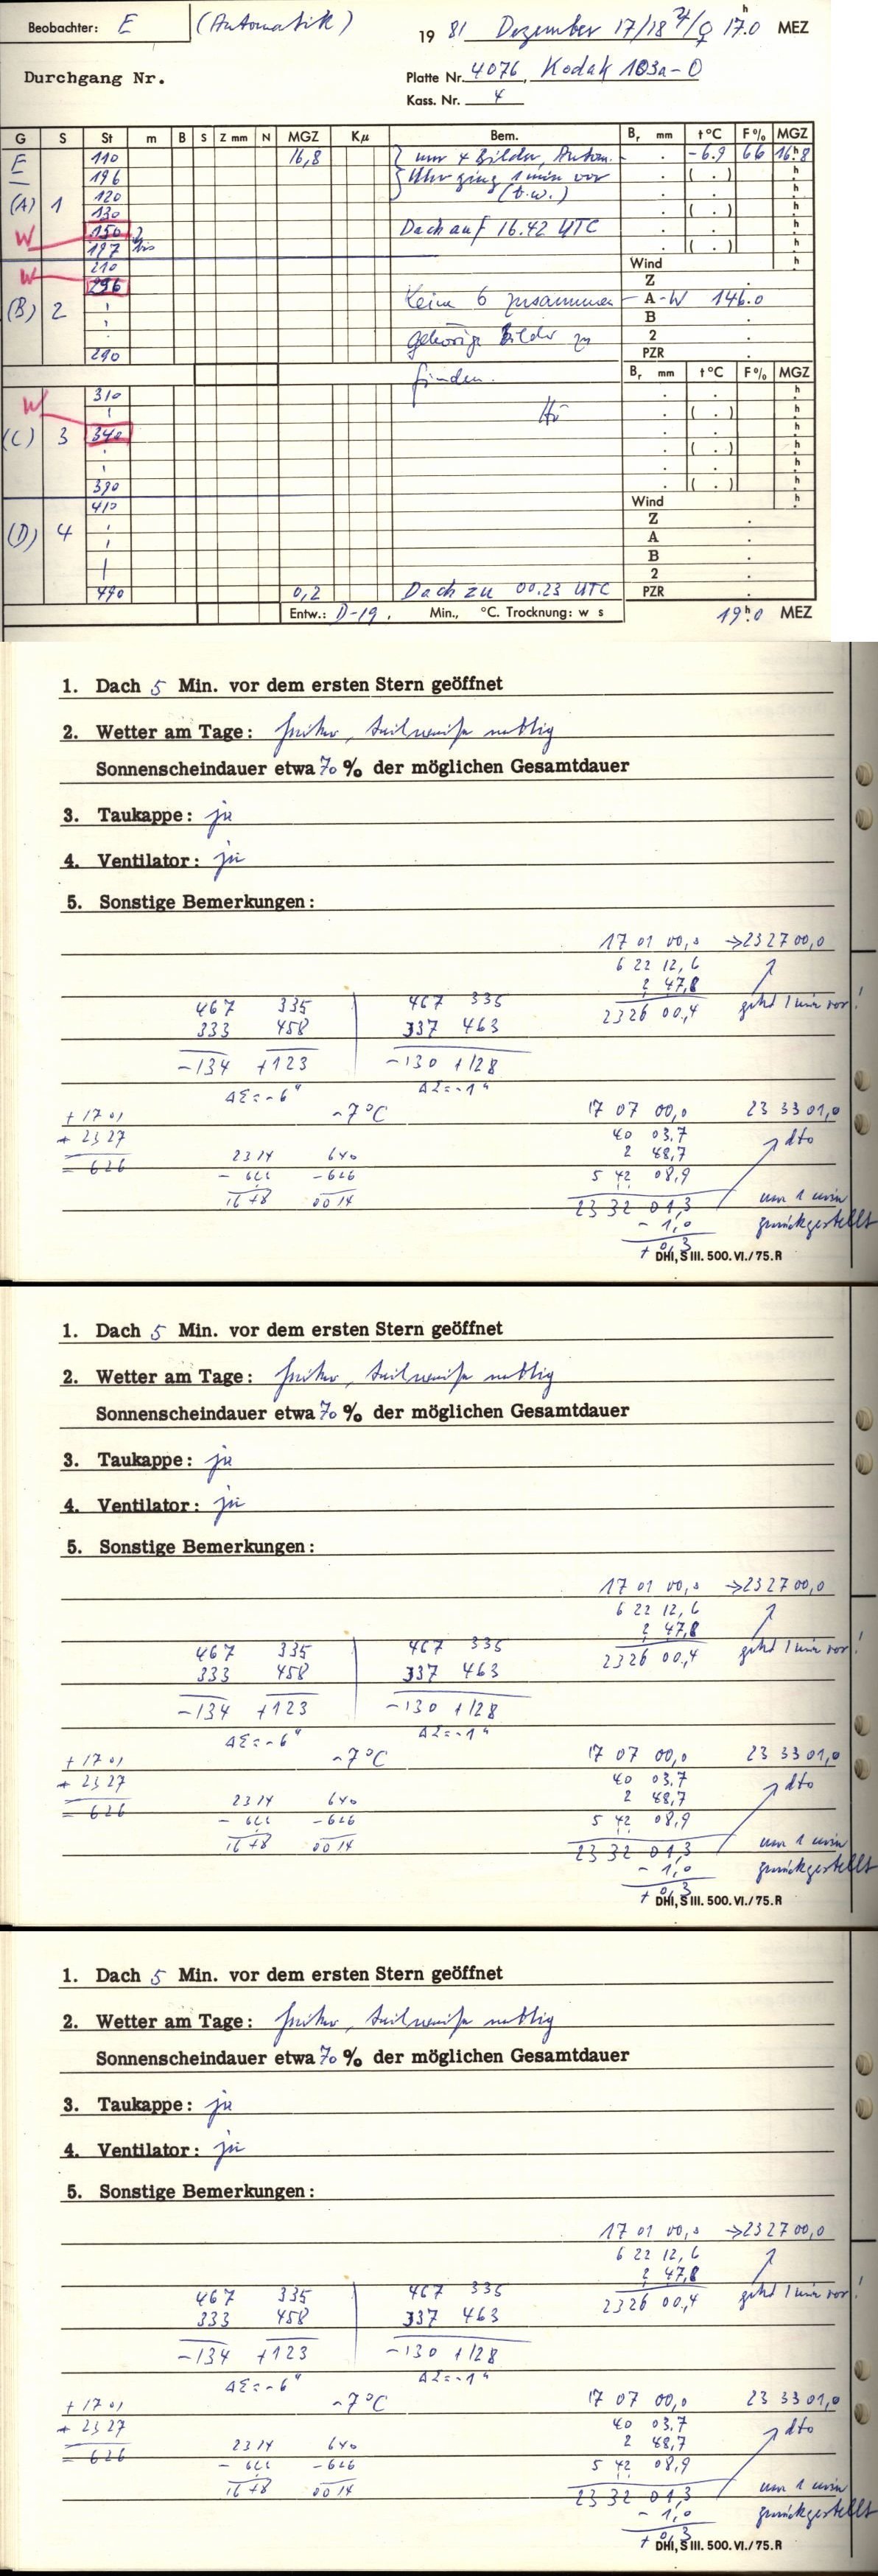 Beobachter: E (Automatik) 19 81 Dezember 17/18 ♃/♀ 17.0 h MEZ
Durchgang Nr. Platte Nr. 4076, Kodak 103a-O
Kass. Nr. 4
G S St m B S Z mm N MGZ Kμ Bem. Br mm t°C F% MGZ
E 110 16,8 nur 4 Bilder, Autom. -6.9 66 16h8
196 Uhr ging 1 min vor
(A) 1 120 (b.w.)
130
W 150 Dach auf 16.42 UTC
197
210 Wind
W 296 Z
(B) 2 Keine 6 zusammen - A-W 146.0
gehörige Bilder zu B
2
290 PZR
finden. Br mm t°C F% MGZ
310
W Hü
(C) 3 340
390
410 Wind
Z
(D) 4 A
B
2
490 0,2 Dach zu 00.23 UTC PZR
Entw.: D-19. Min., °C. Trocknung: w s 19h0 MEZ
1. Dach 5 Min. vor dem ersten Stern geöffnet
2. Wetter am Tage: heiter, teilweise neblig
Sonnenscheindauer etwa 70 % der möglichen Gesamtdauer
3. Taukappe: ja
4. Ventilator: ja
5. Sonstige Bemerkungen:
17 01 00,0 → 23 27 00,0
6 22 12,6
2 47,8
467 335 467 335 23 26 00,4 geht 1 min vor!
333 458 337 463
-134 +123 -130 +128
ΔΣ=-6" ΔΣ=-1"
+1701 -7°C 17 07 00,0 23 33 01,0
+2327 40 03,7 dto
626 2314 640 2 48,7
-626 -626 5 42 08,9
1648 0014 23 32 01,3 um 1 min
-1,0 zurückgestellt
+0,3
DHI, S III. 500. VI./75. R
1. Dach 5 Min. vor dem ersten Stern geöffnet
2. Wetter am Tage: heiter, teilweise neblig
Sonnenscheindauer etwa 70 % der möglichen Gesamtdauer
3. Taukappe: ja
4. Ventilator: ja
5. Sonstige Bemerkungen:
17 01 00,0 → 23 27 00,0
6 22 12,6
2 47,8
467 335 467 335 23 26 00,4 geht 1 min vor!
333 458 337 463
-134 +123 -130 +128
ΔΣ=-6" ΔΣ=-1"
+1701 -7°C 17 07 00,0 23 33 01,0
+2327 40 03,7 dto
626 2314 640 2 48,7
-626 -626 5 42 08,9
1648 0014 23 32 01,3 um 1 min
-1,0 zurückgestellt
+0,3
DHI, S III. 500. VI./75. R
1. Dach 5 Min. vor dem ersten Stern geöffnet
2. Wetter am Tage: heiter, teilweise neblig
Sonnenscheindauer etwa 70 % der möglichen Gesamtdauer
3. Taukappe: ja
4. Ventilator: ja
5. Sonstige Bemerkungen:
17 01 00,0 → 23 27 00,0
6 22 12,6
2 47,8
467 335 467 335 23 26 00,4 geht 1 min vor!
333 458 337 463
-134 +123 -130 +128
ΔΣ=-6" ΔΣ=-1"
+1701 -7°C 17 07 00,0 23 33 01,0
+2327 40 03,7 dto
626 2314 640 2 48,7
-626 -626 5 42 08,9
1648 0014 23 32 01,3 um 1 min
-1,0 zurückgestellt
+0,3
DHI, S III. 500. VI./75. R